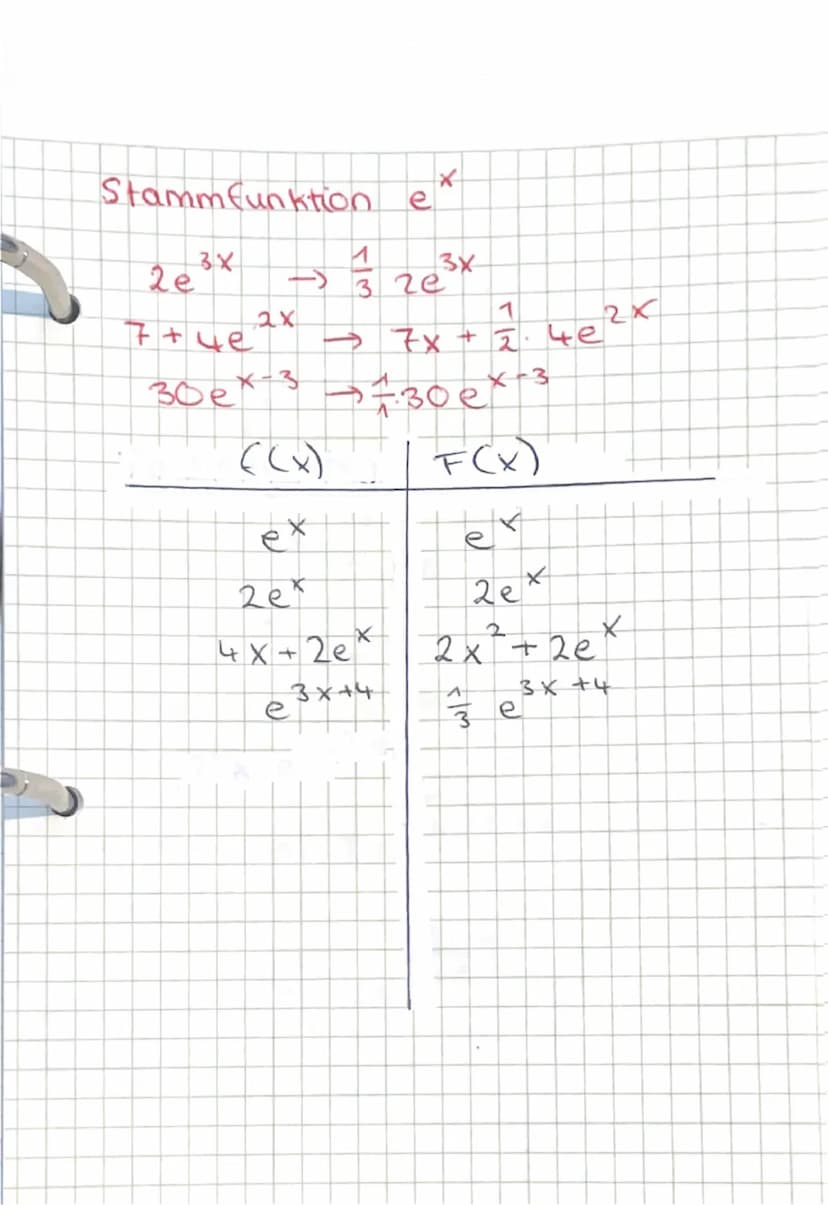 Stammfunktion eˣ
2e³ˣ → 1/3 2e³ˣ
7 + 4e²ˣ → 7x + 1/2 · 4e²ˣ
30eˣ⁻³ → 1/1 · 30eˣ⁻³
f(x) F(x)
eˣ eˣ
2eˣ 2eˣ
4x + 2eˣ 2x² + 2eˣ
e³ˣ⁺⁴ 1/3 e³ˣ⁺⁴